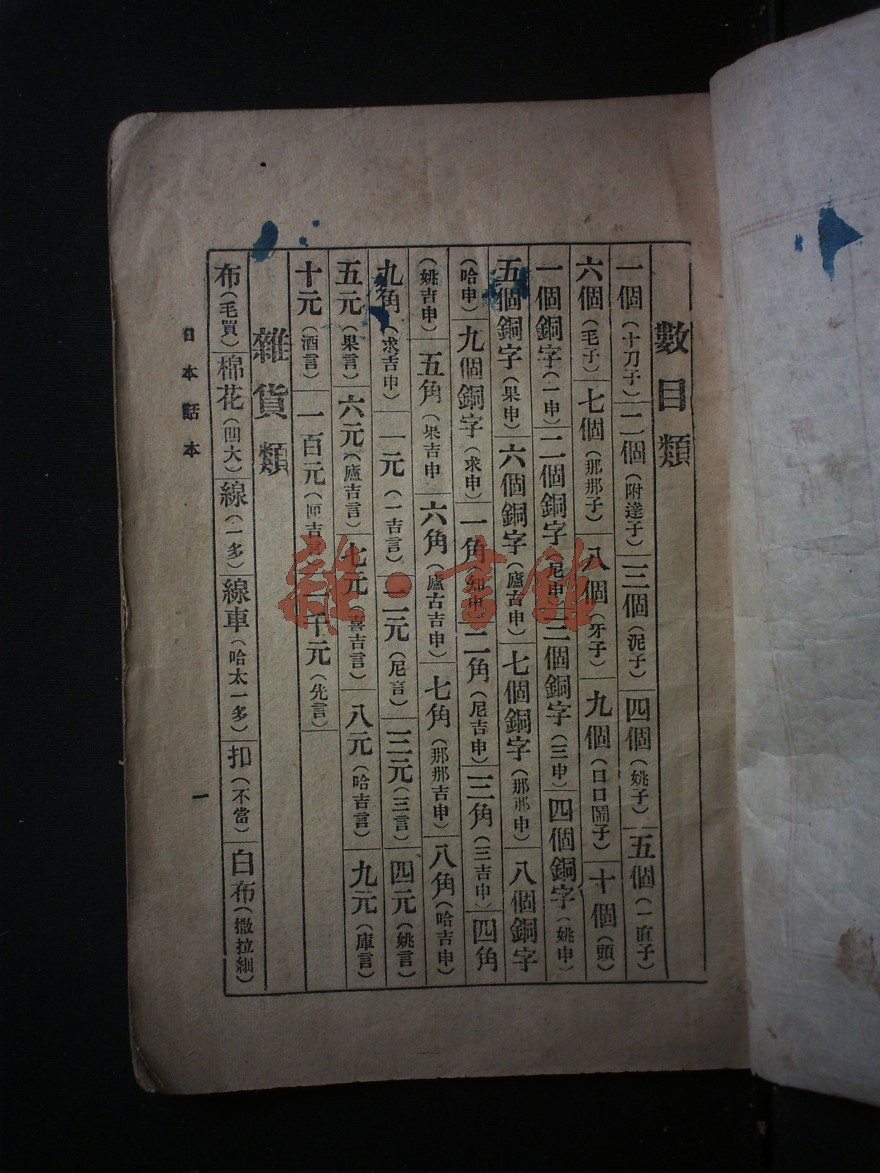 數目類
一個(十刀子)二個(附達子)三個(泥子)四個(姚子)五個(一直子)
六個(毛子)七個(那那子)八個(牙子)九個(口口鬧子)十個(頭)
一個銅字(一申)二個銅字(尼申)三個銅字(三申)四個銅字(姚申)
五個銅字(果申)六個銅字(廬吉申)七個銅字(那那申)八個銅字
(哈申)九個銅字(求申)一角 二角(尼吉申)三角(三吉申)四角
(姚吉申)五角(果吉申 六角(廬古吉申)七角(那那吉申)八角(哈吉申)
九角(求吉申)一元(一吉言)二元(尼言)三元(三言)四元(姚言)
五元(果言)六元(廬吉言)七元(喜吉言)八元(哈吉言)九元(庫言)
十元(酒言)一百元 千元(先言)
雜貨類
布(毛買)棉花(凹大)線(一多)線車(哈太一多)扣(不當)白布(撒拉細)
日本話本
一
雜·書館